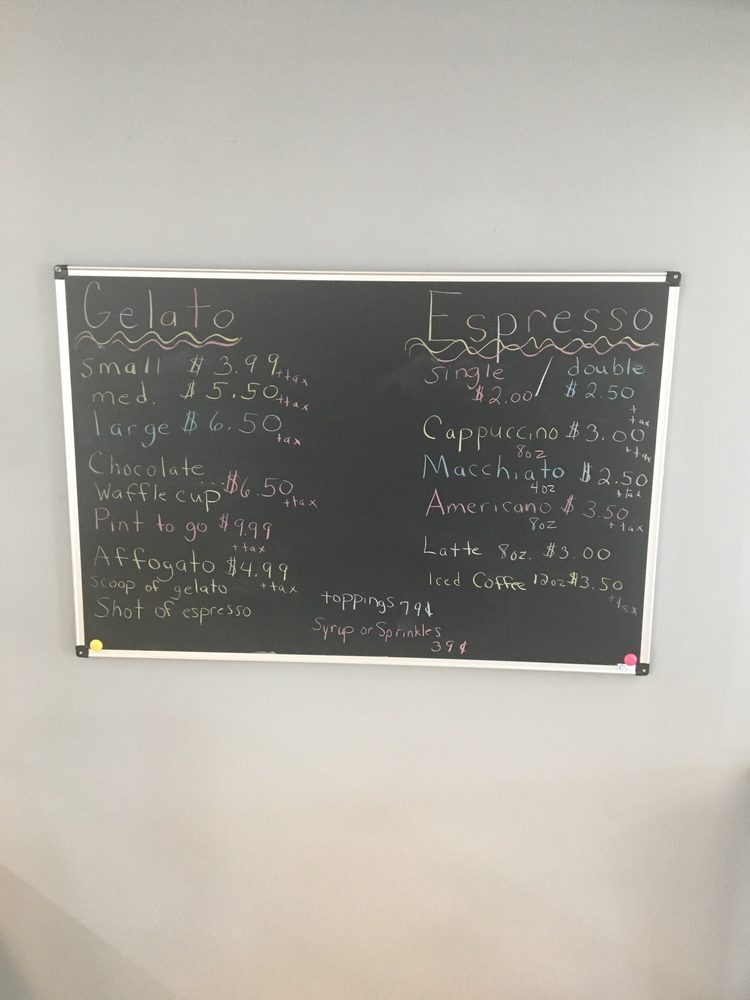 Gelato
small $3.99 +tax
med. $5.50 +tax
large $6.50 tax
Chocolate
Waffle cup ...$6.50 +tax
Pint to go $9.99
+tax
Affogato $4.99
+tax
scoop of gelato
Shot of espresso
toppings 79¢
Syrup or Sprinkles
39¢
Espresso
single / double
$2.00 $2.50
+
tax
Cappuccino $3.00
8oz +tax
Macchiato $2.50
4oz +tax
Americano $3.50
8oz +tax
Latte 8oz. $3.00
Iced Coffee 12oz $3.50
+tax